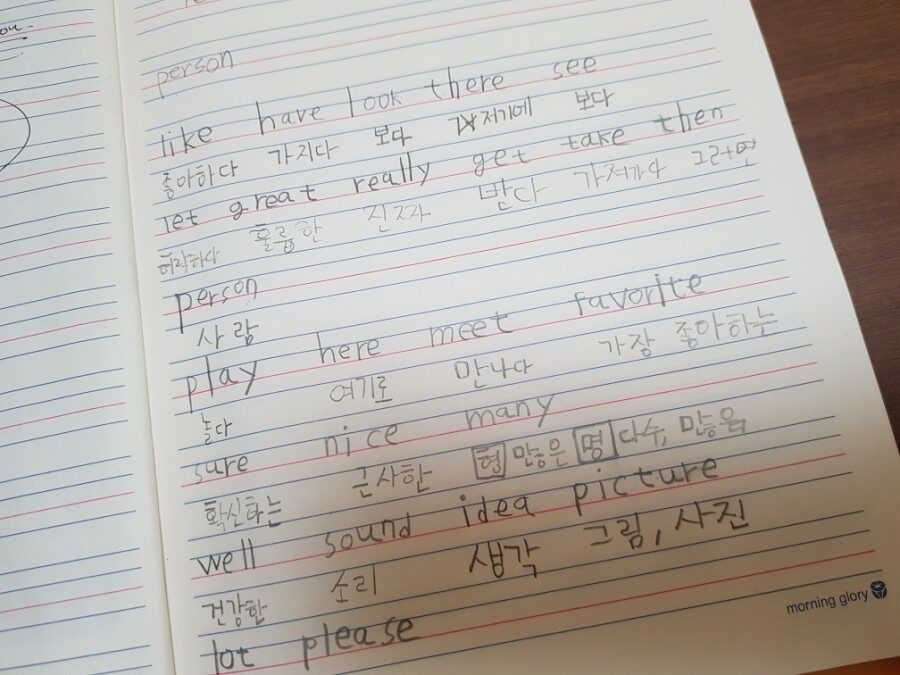 person
like have look there see
좋아하다 가지다 보다 저기에 보다
let great really get take then
허락하다 훌륭한 진짜 받다 가져가다 그러면
person
사람
play here meet favorite
놀다 여기로 만나다 가장 좋아하는
sure nice many
확신하는 근사한 형 많은 명 다수, 많음
well sound idea picture
건강한 소리 생각 그림, 사진
lot please
morning glory